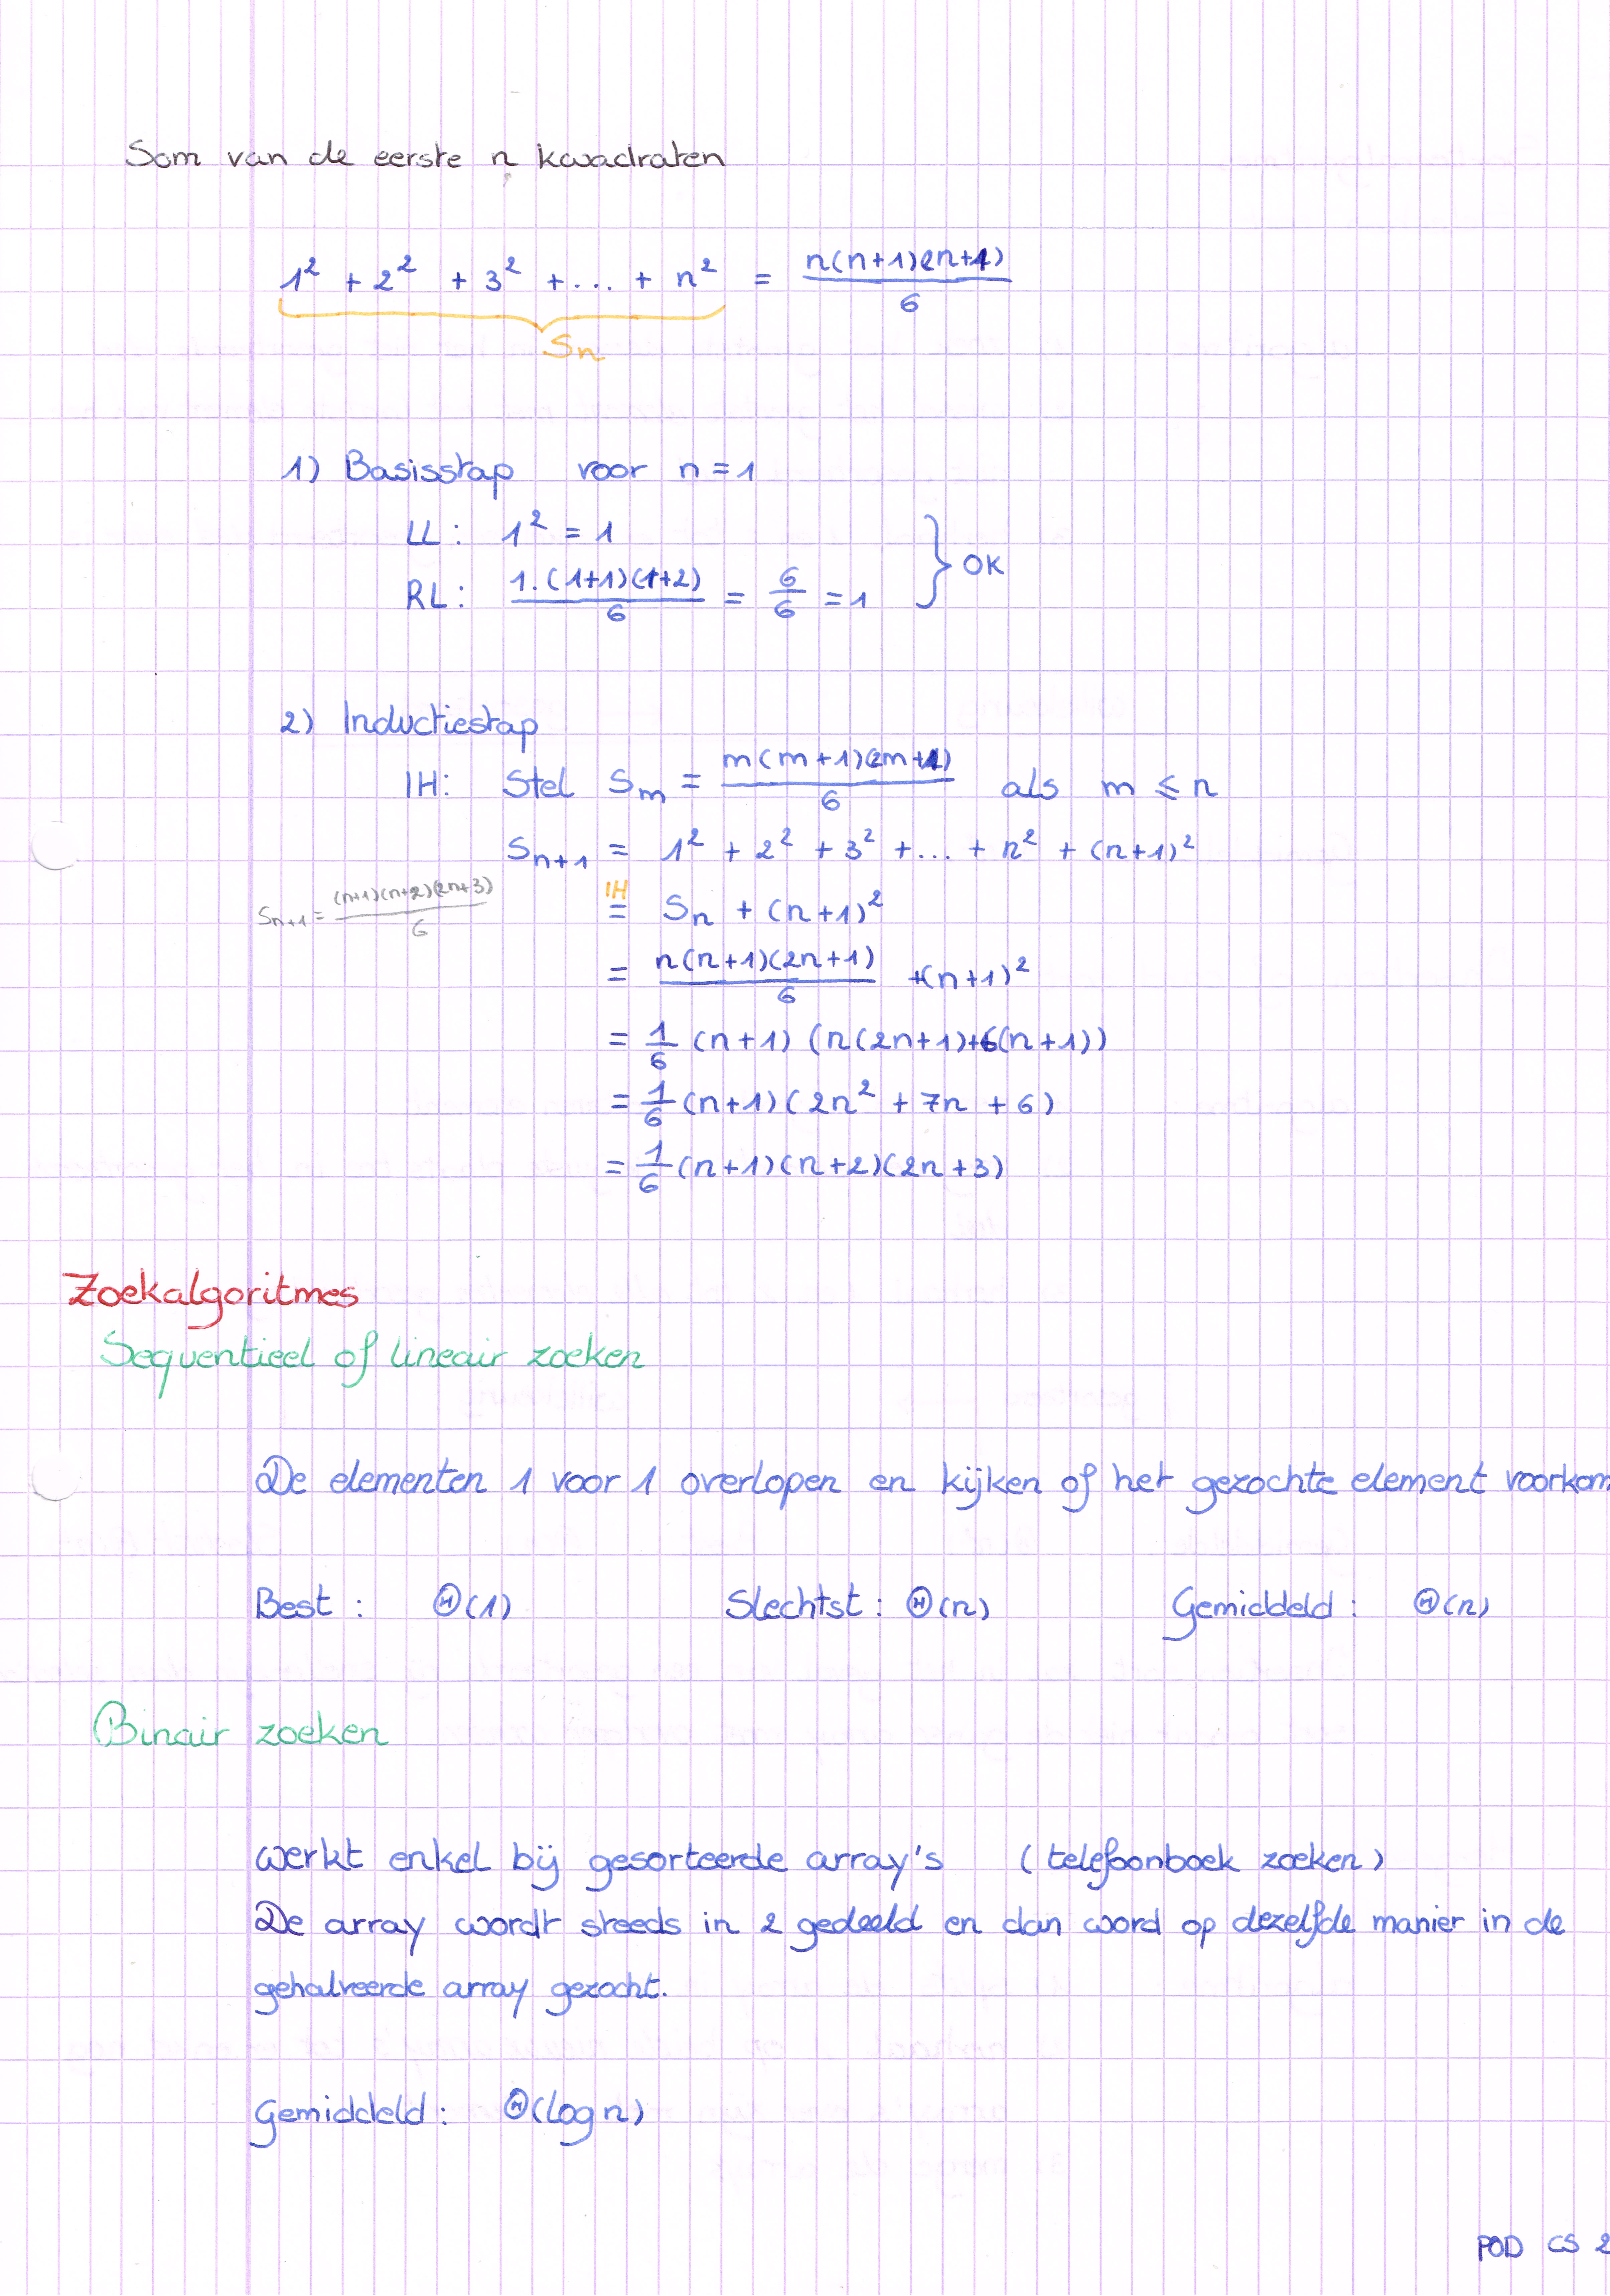 Som van de eerste n kwadraten
1² + 2² + 3² + ... + n² = n(n+1)(2n+1)/6
Sn
1) Basisstap voor n = 1
LL: 1² = 1
RL: 1.(1+1)(1+2)/6 = 6/6 = 1
} OK
2) Inductiestap
IH: Stel Sm = m(m+1)(2m+1)/6 als m ≤ n
Sn+1 = 1² + 2² + 3² + ... + n² + (n+1)²
Sn+1 = (n+1)(n+2)(2n+3)/6
IH
= Sn + (n+1)²
= n(n+1)(2n+1)/6 + (n+1)²
= 1/6 (n+1) (n(2n+1)+6(n+1))
= 1/6 (n+1)(2n² + 7n + 6)
= 1/6 (n+1)(n+2)(2n+3)
Zoekalgoritmes
Sequentieel of lineair zoeken
De elementen 1 voor 1 overlopen en kijken of het gezochte element voorkom
Best : Θ(1) Slechtst : Θ(n) Gemiddeld : Θ(n)
Binair zoeken
werkt enkel bij gesorteerde array's (telefoonboek zoeken)
De array wordt steeds in 2 gedeeld en dan word op dezelfde manier in de
gehalveerde array gezocht.
Gemiddeld : Θ(log n)
POD CS 2